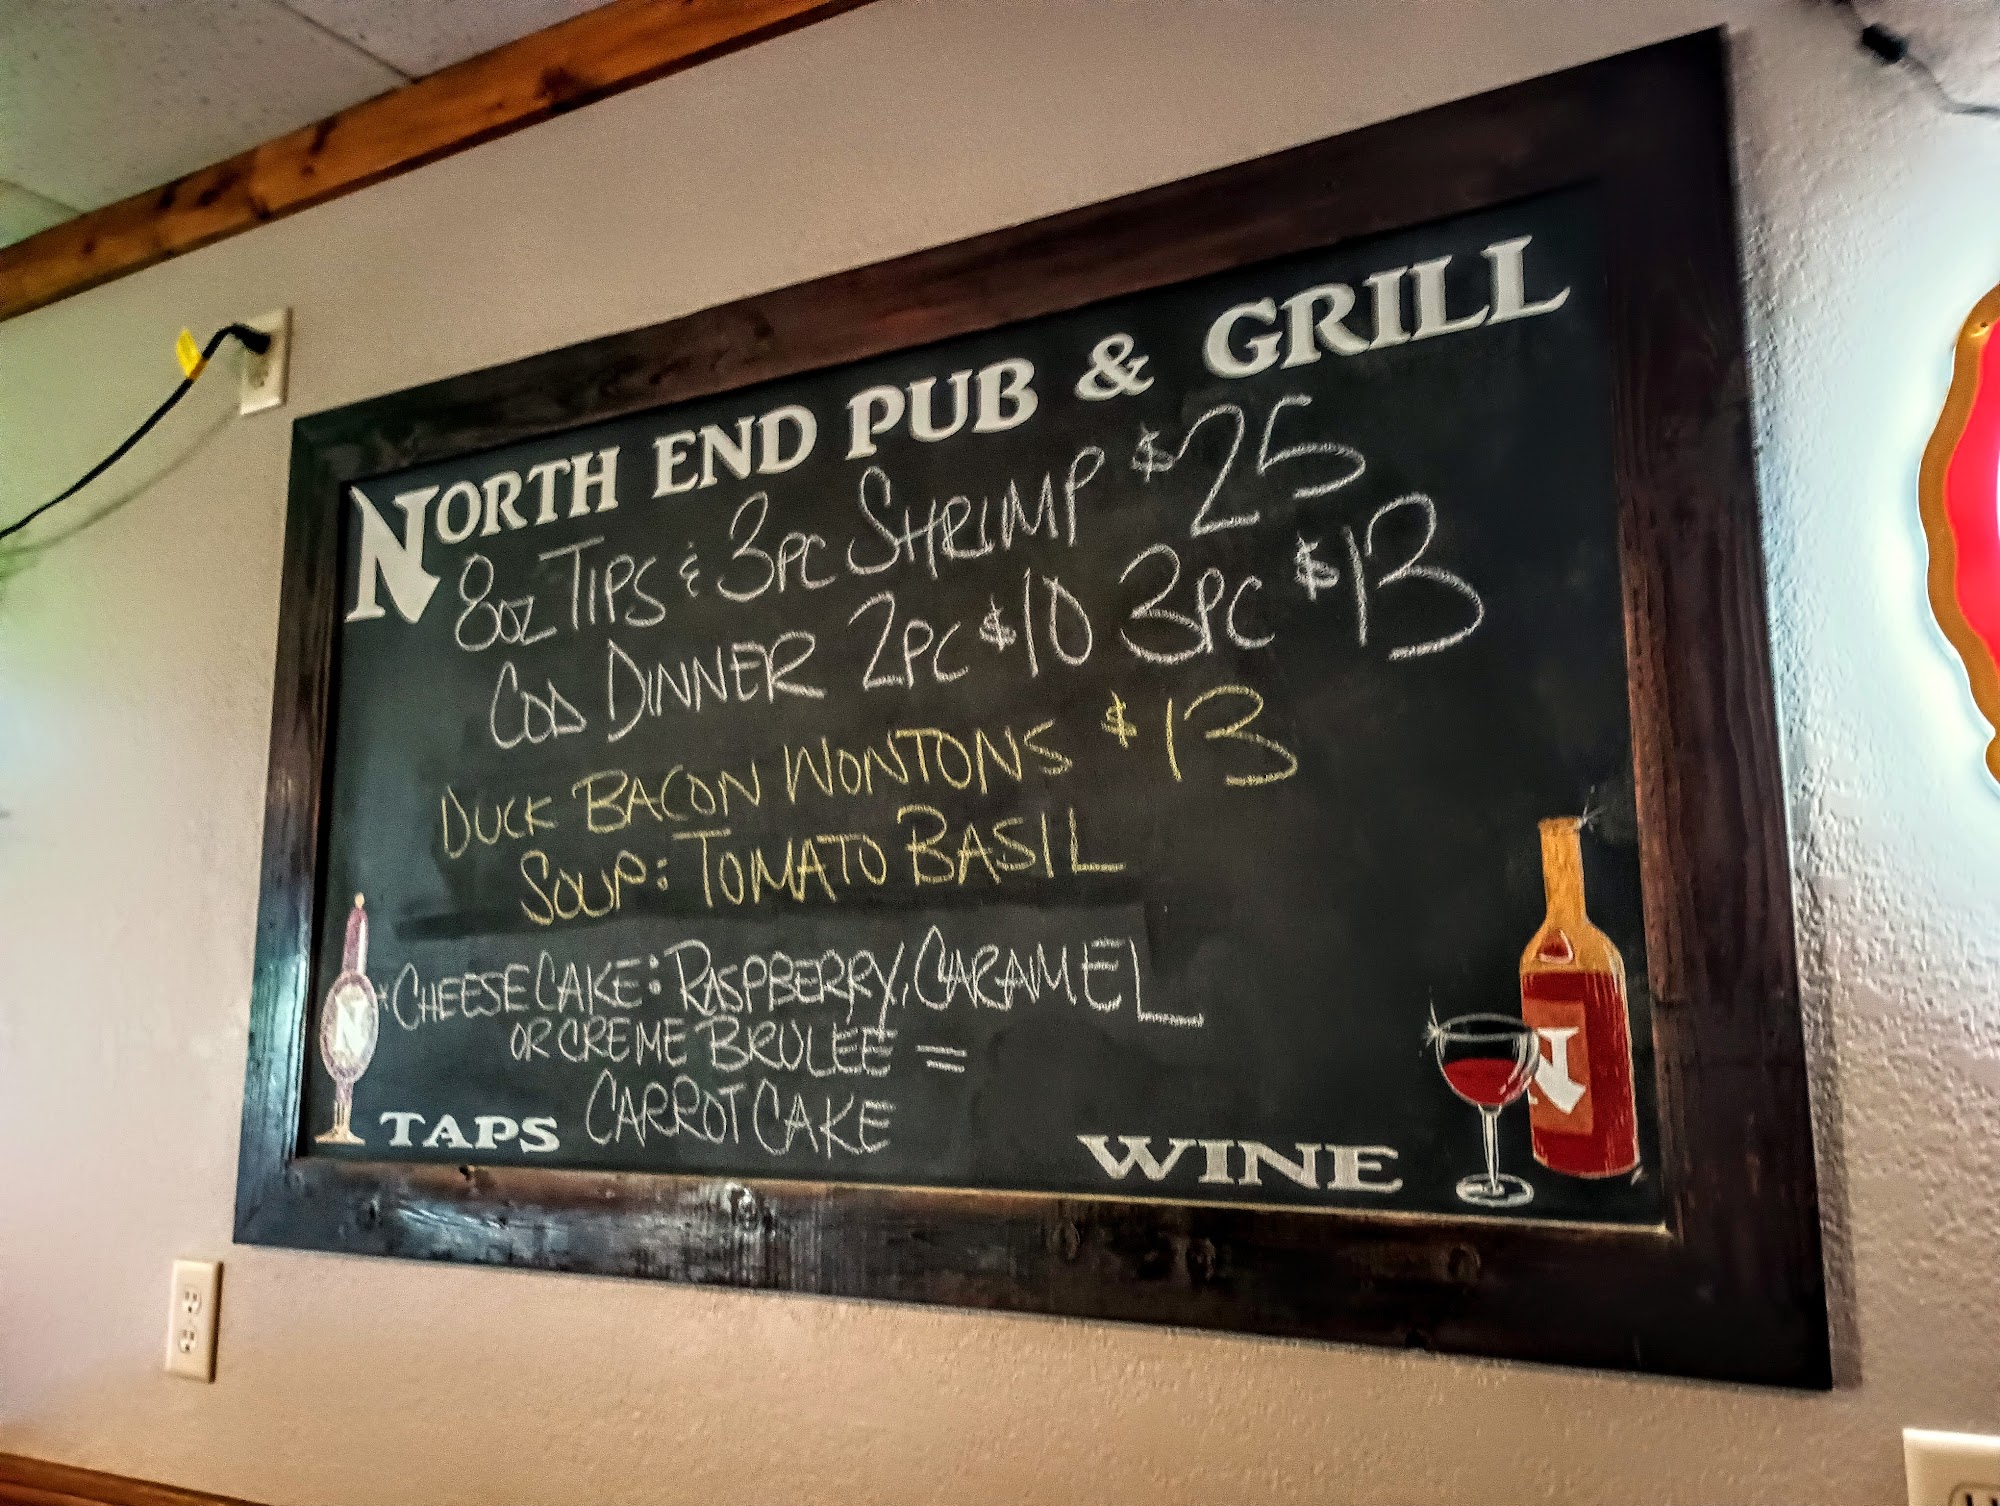 NORTH END PUB & GRILL
8oz TIPS & 3PC SHRIMP $25
COD DINNER 2PC $10 3PC $13
DUCK BACON WONTONS $13
SOUP: TOMATO BASIL
*CHEESECAKE: RASPBERRY, CARAMEL
OR CREME BRULEE =
CARROT CAKE
TAPS
WINE
N
N